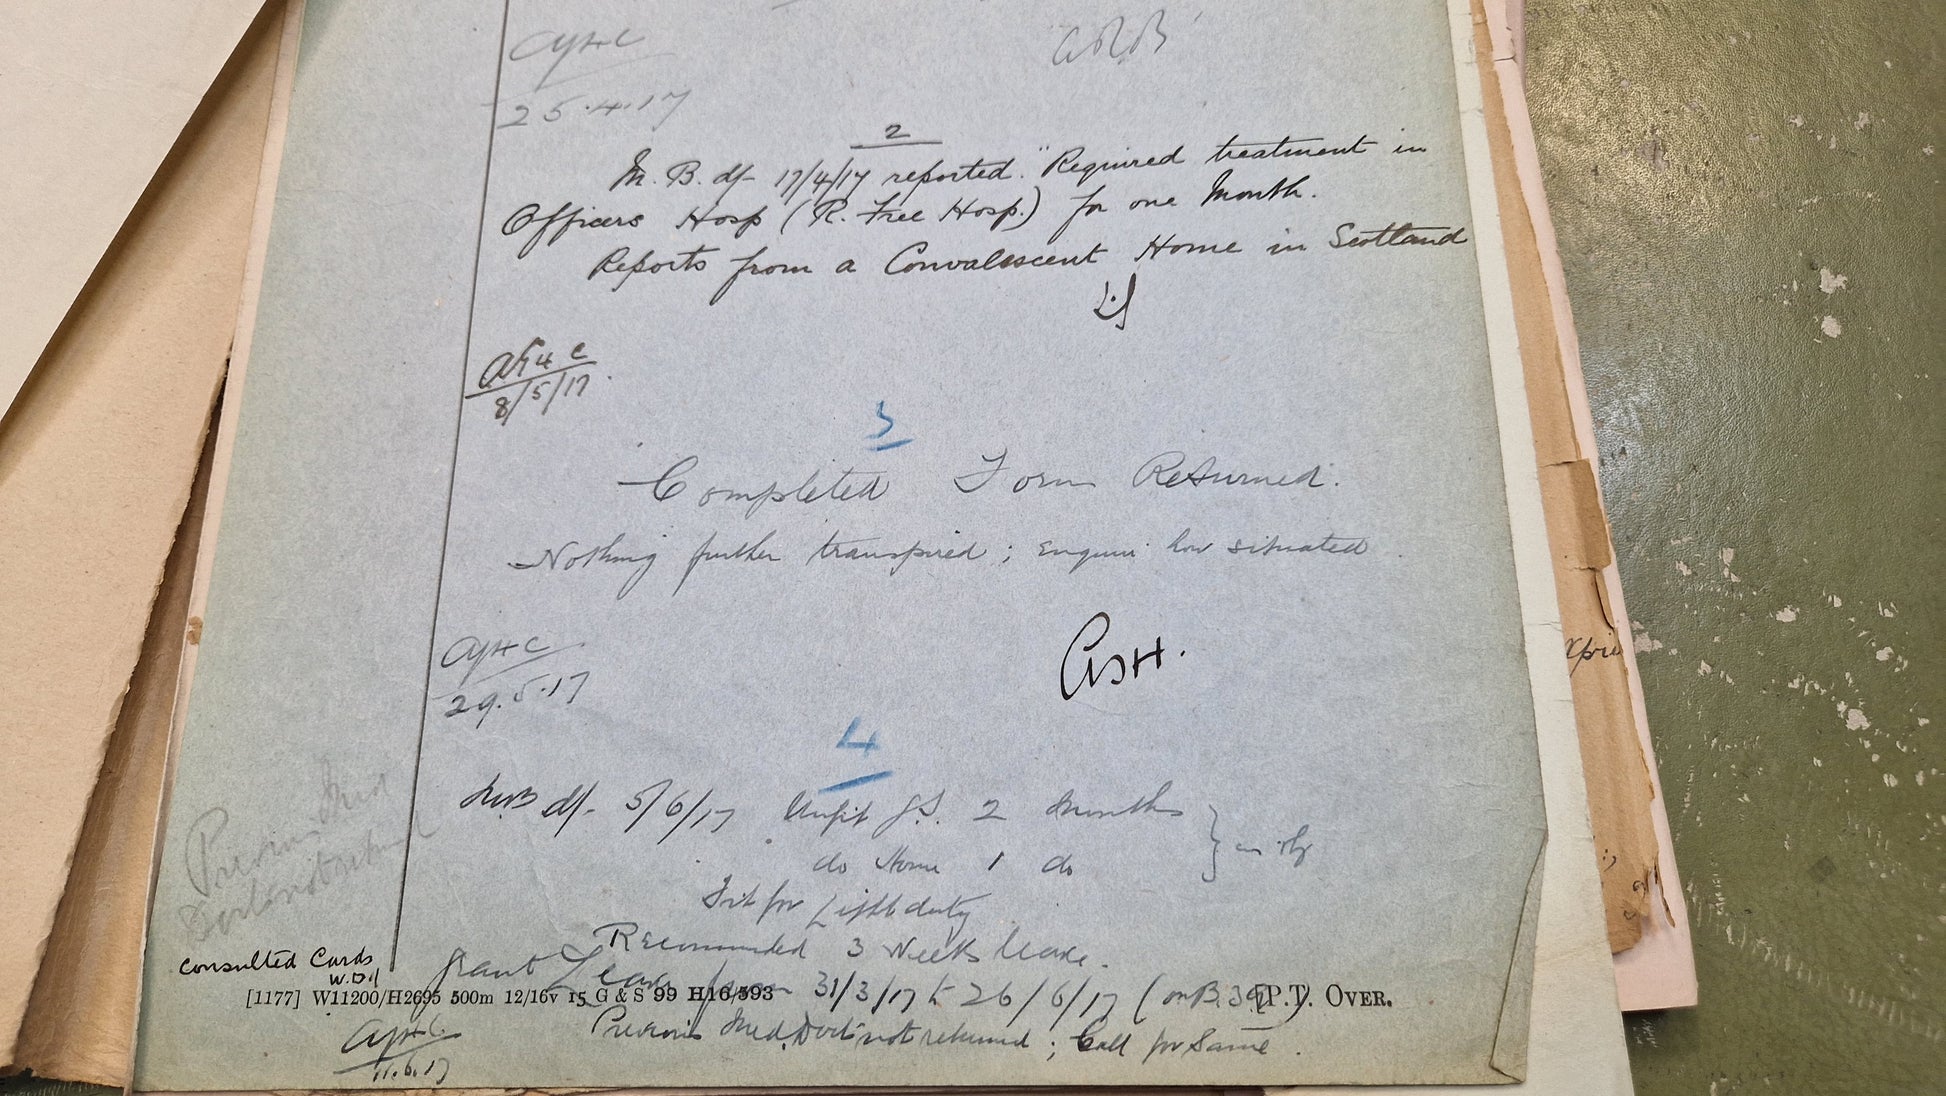 25.4.17
2
M. B. df 17/4/17 reported. "Required treatment in
Officers Hosp (R. Free Hosp.) for one Month.
Reports from a Convalescent Home in Scotland
8/5/17
3
Completed Form Returned.
Nothing further transpired; enquire how situated.
29.5.17
4
MB df- 5/6/17 Unfit G.S. 2 Months
do Home 1 do
Fit for Light duty
Recommended 3 weeks leave.
Grant Leave from 31/3/17 to 26/6/17 (on B.
consulted Cards
[1177] W11200/H2695 500m 12/16v 15 G & S 99 H16/393 [P.T. OVER.
Previous Med. Docts not returned; Call for Same.
11.6.17